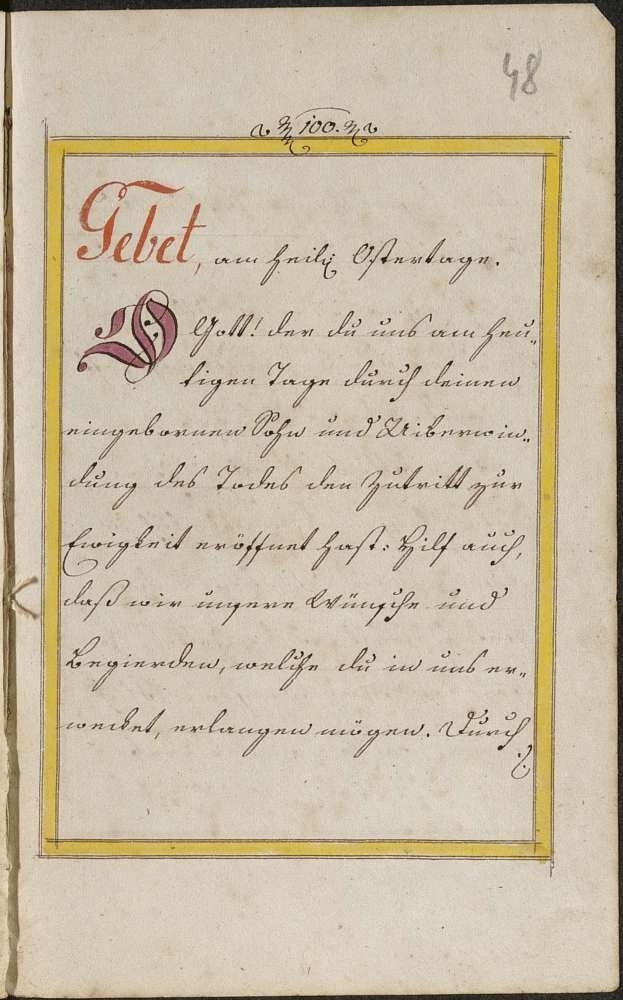 48
100.
Gebet, am heilig Ostertage.
O Gott! der du uns am heu„
tigen Tage durch deinen
eingebornen Sohn und Uiberwin„
dung des Todes den Zutritt zur
Ewigkeit eröffnet hast: Hilf auch,
daß wir unsere Wünsche und
Begierden, welche du in uns er„
wecket, erlangen mögen. Durch